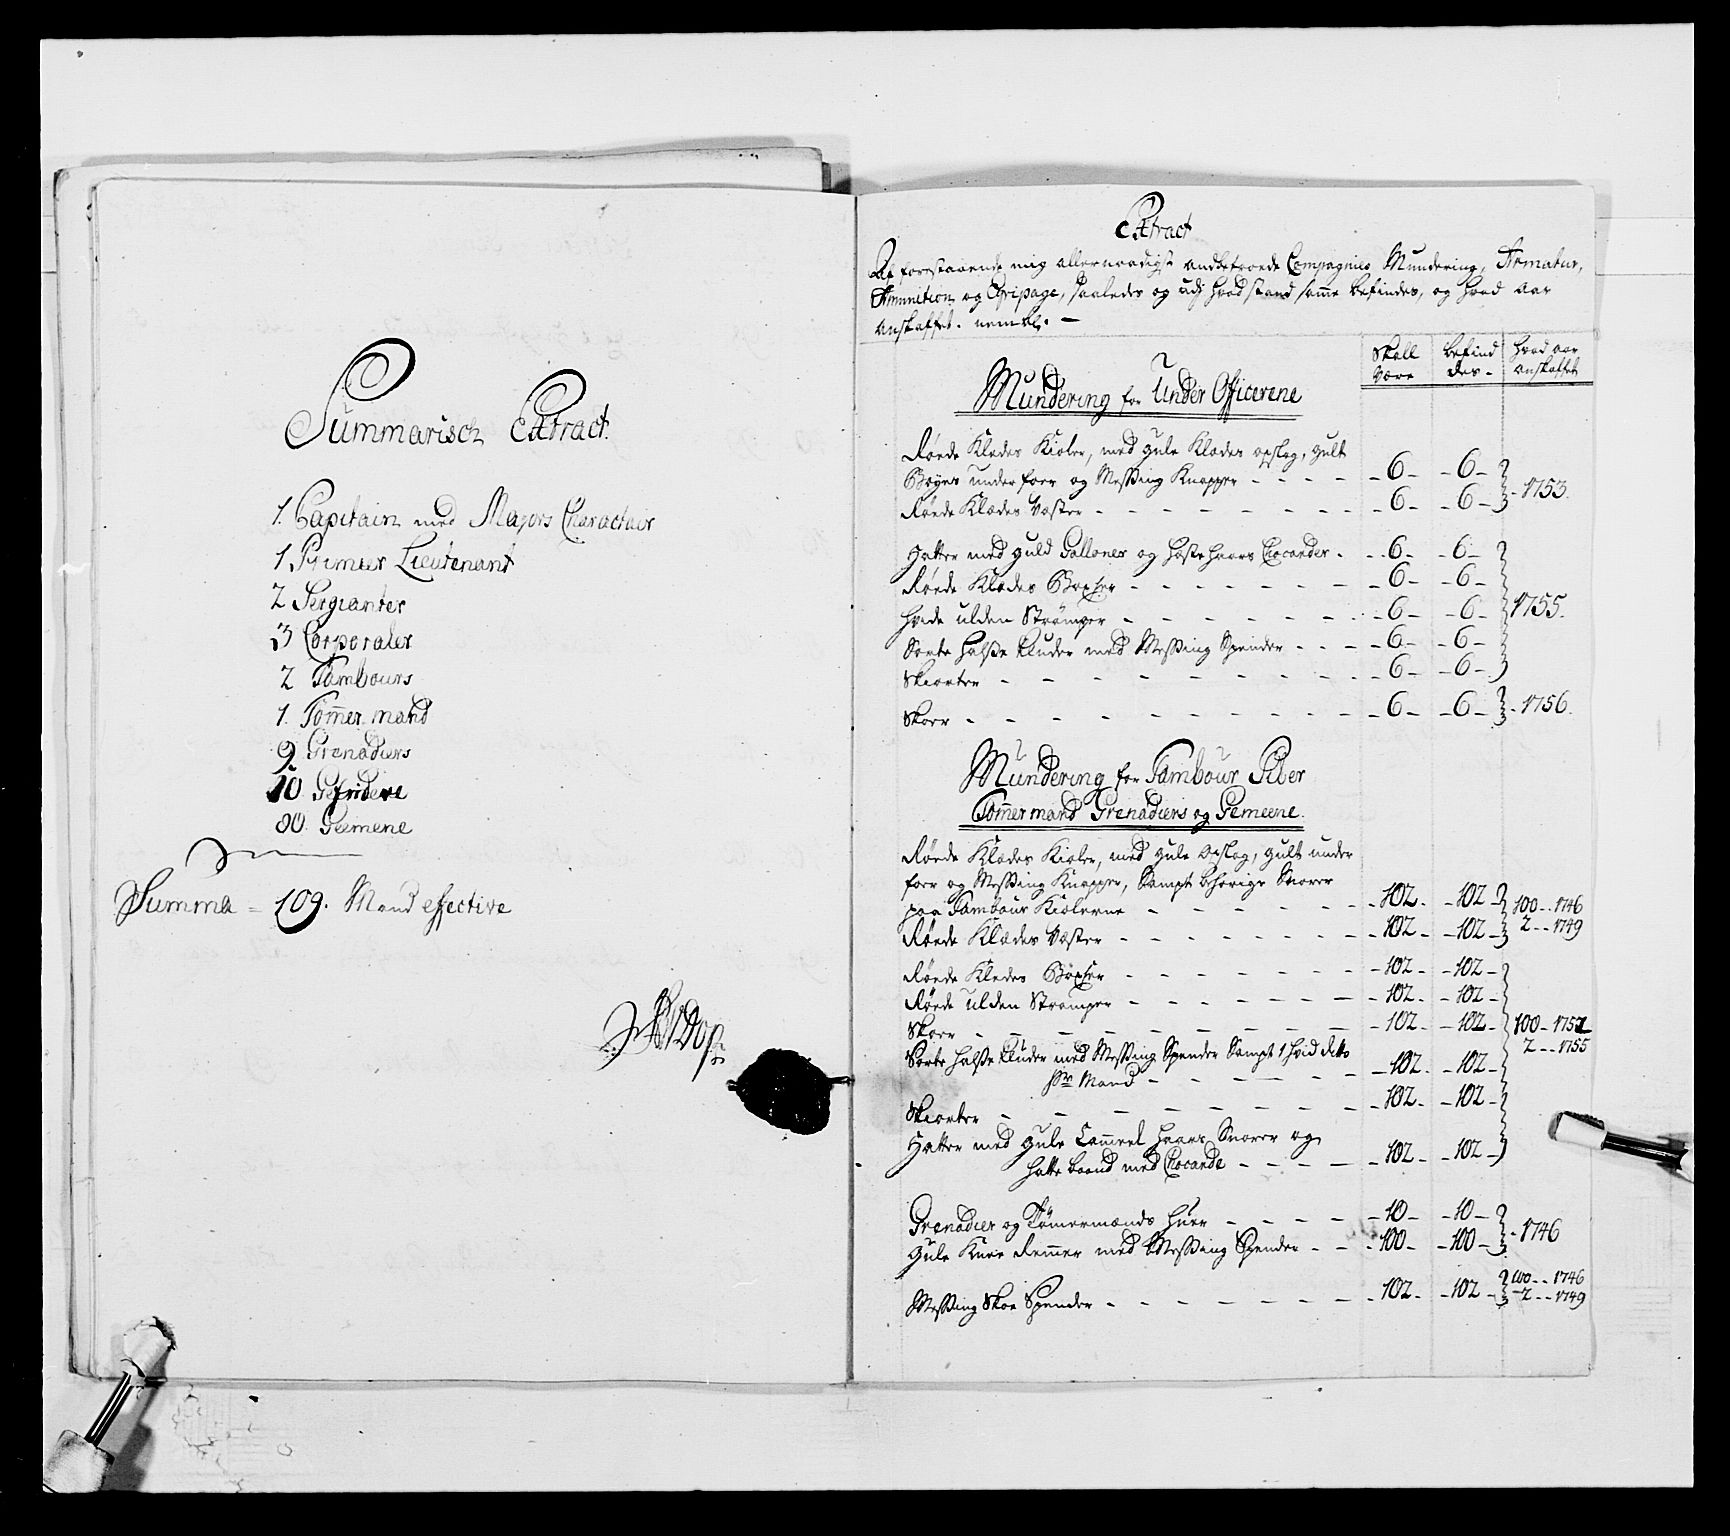 Summarisch Extract.
1. Capitain med Majors Charactair
1 Primier Lieutenant
2 Sergianter
3 Corporaler
2 Tambours
1. Tom̄er mand
9. Grenadiers
10. Gefridere
80. Gemene
Summa = 109. Mand effective
Extract
Af forestaaende mig allernaadigst anbetroede Compagnies Mundering, Armatur,
Amunition og Eqvipage, saaledes og udj hvad stand samme befindes, og hvad aar
anskaffet. nemlig. —
Skall være
befindes -
hvad aar anskaffet
Mundering for Under Officerene
Røede Klædes Kioler, med gule Klædes opslag, gult
Boyes underfoer og Messing Knapper - - - - - 6 - - 6 -
Røede Klædes Væster - - - - - - - - - 6 - - 6 - - 1753.
Hatter med guld Galloner og heste haars Cocarder - - 6 - - 6 -
Røede Klædes Boxser - - - - - - - - 6 - - 6 -
Hvide ulden Strømper - - - - - - - - 6 - - 6 - 1755.
Sorte halse Kluder med Messing Spender - - - - 6 - - 6 -
Skiorter - - - - - - - - - 6 - - 6 -
Skoer - - - - - - - - - - 6 - - 6 - - 1756.
Mundering for Tambour Piber
Tom̄ermand Grenadiers og Gemeene.
Røede Klædes Kioler, med gule opslag, gult under
foer og Messing Knapper, Sampt behørige Snorer
paa Tambour Kiolerne - - - - - - - 102 - - 102 - 100 - - 1746
Røede Klædes Væster - - - - - - - - 102 - - 102 - 2 - - 1749
Røede Klædes Boxser - - - - - - - - 102 - - 102 -
Røede ulden Strømper - - - - - - - - 102 - - 102 -
Skoer - - - - - - - - - 102 - - 102 - 100 - 1752
Sorte halse Kluder med Messing Spender Sampt 1 hvid ditto 2 - - 1755
pr Mand - - - - - - 102 - - 102 -
Skiorter - - - - - - - - - 102 - - 102 -
Hatter med gule Cam̄eel haars Snorer og
hatte baand med Cocarde - - - - - 102 - - 102 -
Grenadier og Tømermands huer - - - - - 10 - - 10 -
gule Knæ Remmer med Messing Spender - - - 100 - - 100 - - 1746
Messing Skoe Spender - - - - - - - - 102 - - 102 - 100 - - 1746
2 - - 1749